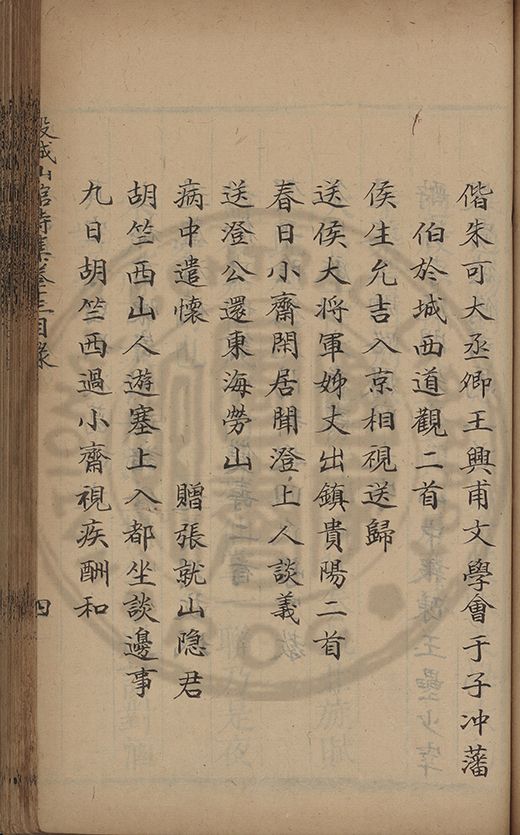 偕朱可大丞卿王興甫文學會于子冲藩
伯於城西道觀二首
侯生允吉入京相視送歸
送侯大將軍姊丈出鎮貴陽二首
春日小齋閑居聞澄上人談義
送澄公還東海勞山
病中遣懷 贈張就山隐君
胡竺西山人遊塞上入都坐談邊事
九日胡竺西過小齋視疾酬和
榖城山館詩集卷三目錄 四